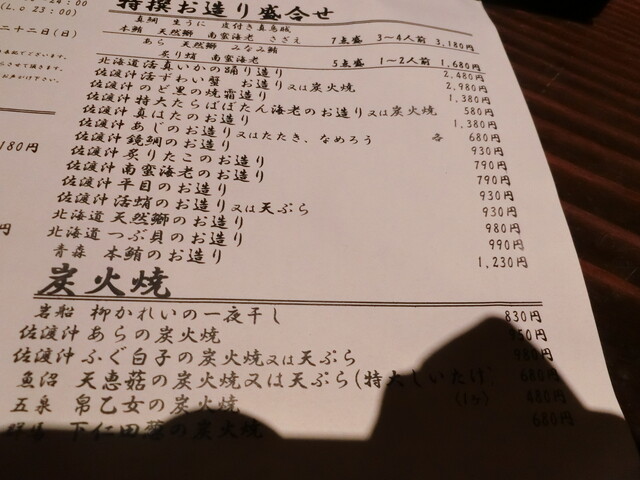 (L.o 23:00)
二十二日(日)
180円
円
特撰お造り盛合せ
真鯛 生うに 皮付き真烏賊
本鮪 天然鰤 南蛮海老 さざえ 7点盛 3~4人前 3,180円
あら 天然鰤 みなみ鮪
炙り蛸 南蛮海老 5点盛 1~2人前 1,680円
北海道活真いかの踊り造り 2,480円
佐渡沖活ずわい蟹 お造り又は炭火焼 2,980円
佐渡沖のど黒の焼霜造り 1,380円
佐渡沖特大たらばぼたん海老のお造り又は炭火焼 580円
佐渡沖真はたのお造り 1,380円
佐渡沖あじのお造り又はたたき、なめろう 各 680円
佐渡沖鏡鯛のお造り 930円
佐渡沖炙りたこのお造り 790円
佐渡沖南蛮海老のお造り 790円
佐渡沖平目のお造り 930円
佐渡沖活蛸のお造り又は天ぷら 930円
北海道天然鰤のお造り 980円
北海道つぶ貝のお造り 990円
青森 本鮪のお造り 1,230円
炭火焼
岩船 柳かれいの一夜干し 830円
佐渡沖あらの炭火焼 950円
佐渡沖ふぐ白子の炭火焼又は天ぷら 980円
魚沼 天恵菇の炭火焼又は天ぷら(特大しいたけ 680円
五泉 帛乙女の炭火焼 (1ヶ) 480円
群馬 下仁田葱の炭火焼 680円